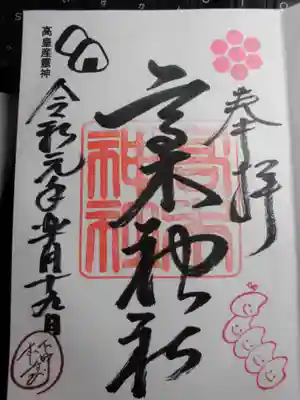 奉拝
高木神社
高木
神社
高皇産靈神
令和元年皐月十九日